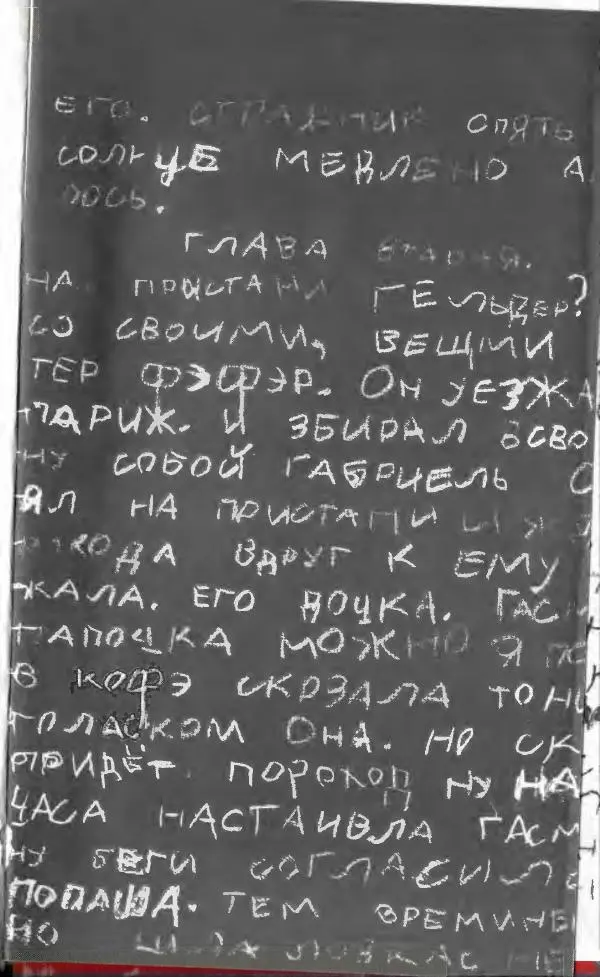 ЕГО. ОПЯТЬ
СОЛНЦЕ МЕДЛЕНО
ЛОСЬ.
ГЛАВА ВТАРАЯ.
НА ПРИСТАНИ ГЕЛЬДЕР?
СО СВОИМИ, ВЕЩМИ
ТЕР ФЭФЭР. ОН УЕЗЖА
ПАРИЖ. И ЗБИРАЛ ВСВО
НУ СОБОЙ ГАБРИЕЛЬ С
ЯЛ НА ПРИСТАНИ И
ВДРУГ К ЕМУ
ЖАЛА. ЕГО ДОЧКА. ГАСМ
ПАПОЧКА МОЖНО Я ПО
В КОФЭ СКОЗАЛА ТОН
ГОЛАСКОМ ОНА. НО СК
ПРИДЁТ. ПОРОХОД НУ НА
ЧАСА НАСТАИВЛА ГАСМ
НУ БЕГИ СОГЛАСИЛС
ПОПАША. ТЕМ ВРЕМИНЕ
НО